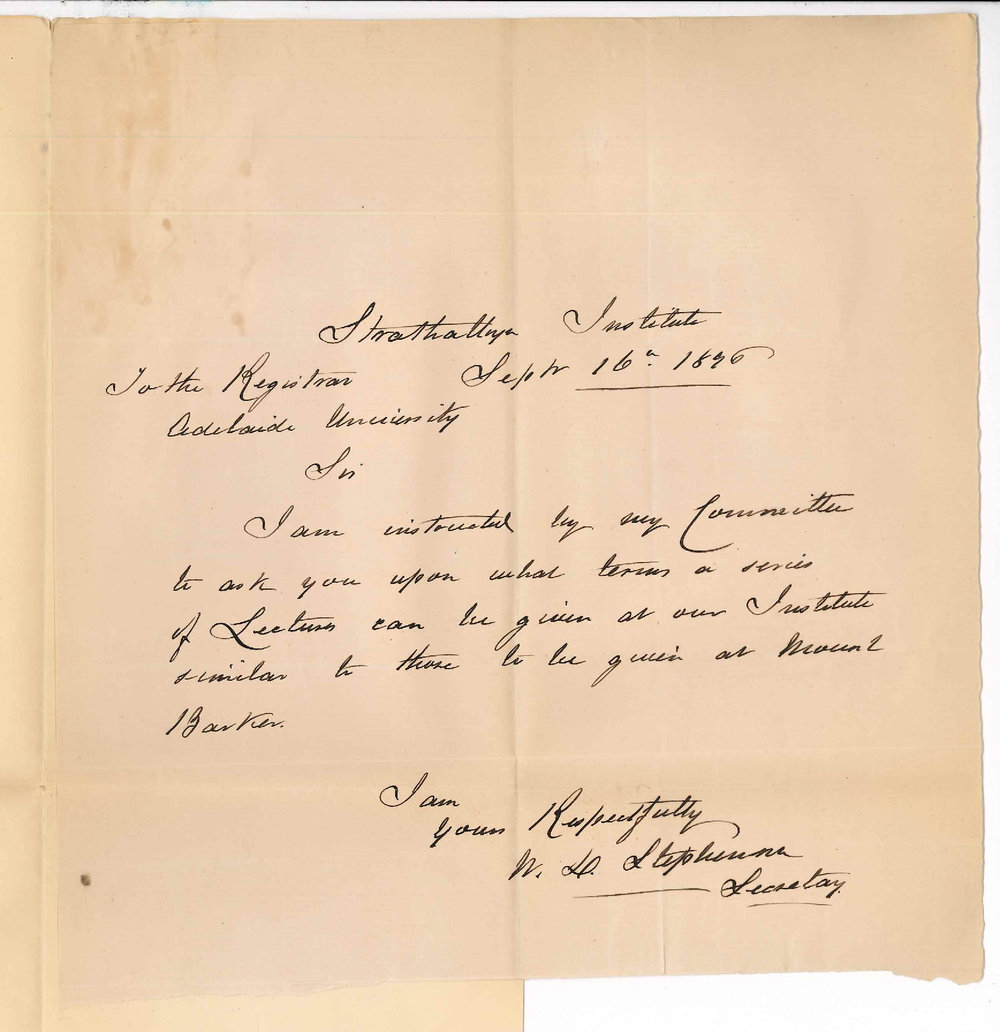 Strathalbyn Institute
Septr 16th 1896
To the Registrar
Adelaide University
Sir
I am instructed by my Committee
to ask you upon what terms a series
of Lectures can be given at our Institute
similar to those to be given at Mount
Barker.
I am
Yours Respectfully
W. H. Stephenson
Secretary